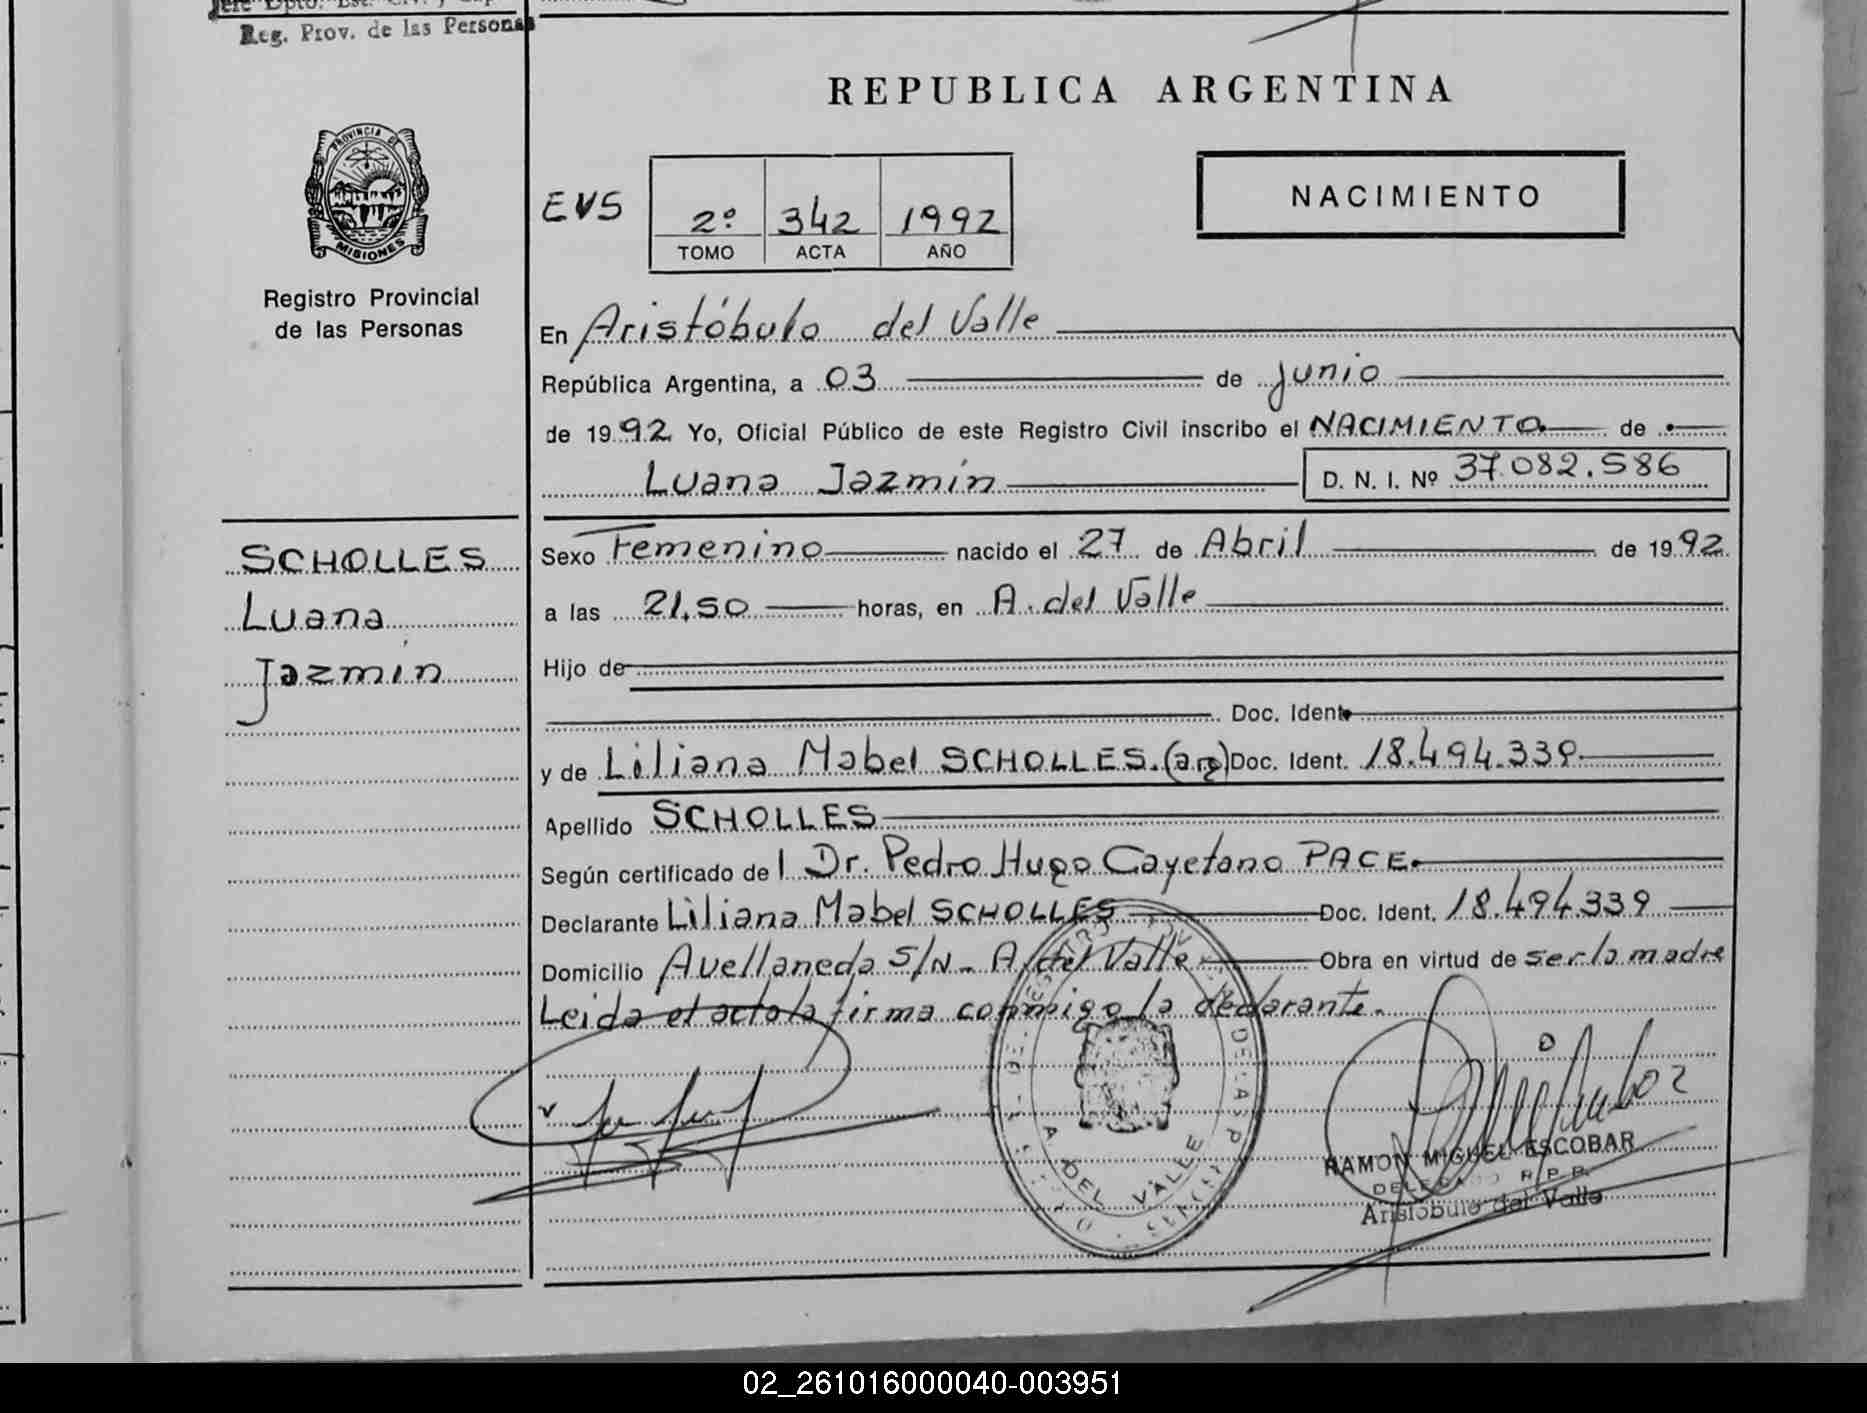 Jefe Dpto. Est. Civ. y Cap.
Reg. Prov. de las Personas
REPUBLICA ARGENTINA
PROVINCIA DE
MISIONES
Registro Provincial
de las Personas
EVS
2º 342 1992
TOMO ACTA AÑO
NACIMIENTO
En Aristóbulo del Valle
República Argentina, a 03 de junio
de 1992 Yo, Oficial Público de este Registro Civil inscribo el NACIMIENTO de
Luana Jazmín D. N. I. Nº 37.082.586
SCHOLLES
Luana
Jazmín
Sexo Femenino nacido el 27 de Abril de 1992
a las 21,50 horas, en A. del Valle
Hijo de
Doc. Ident.
y de Liliana Mabel SCHOLLES.(arg) Doc. Ident. 18.494.339
Apellido SCHOLLES
Según certificado de l Dr. Pedro Hugo Cayetano PACE
Declarante Liliana Mabel SCHOLLES Doc. Ident. 18.494.339
Domicilio Avellaneda S/N. A. del Valle Obra en virtud de ser la madre
Leida el acta la firma conmigo la declarante.
A. DEL VALLE
RAMON MIGUEL ESCOBAR
DELEGADO R.P.P.
Aristóbulo del Valle
02_261016000040-003951